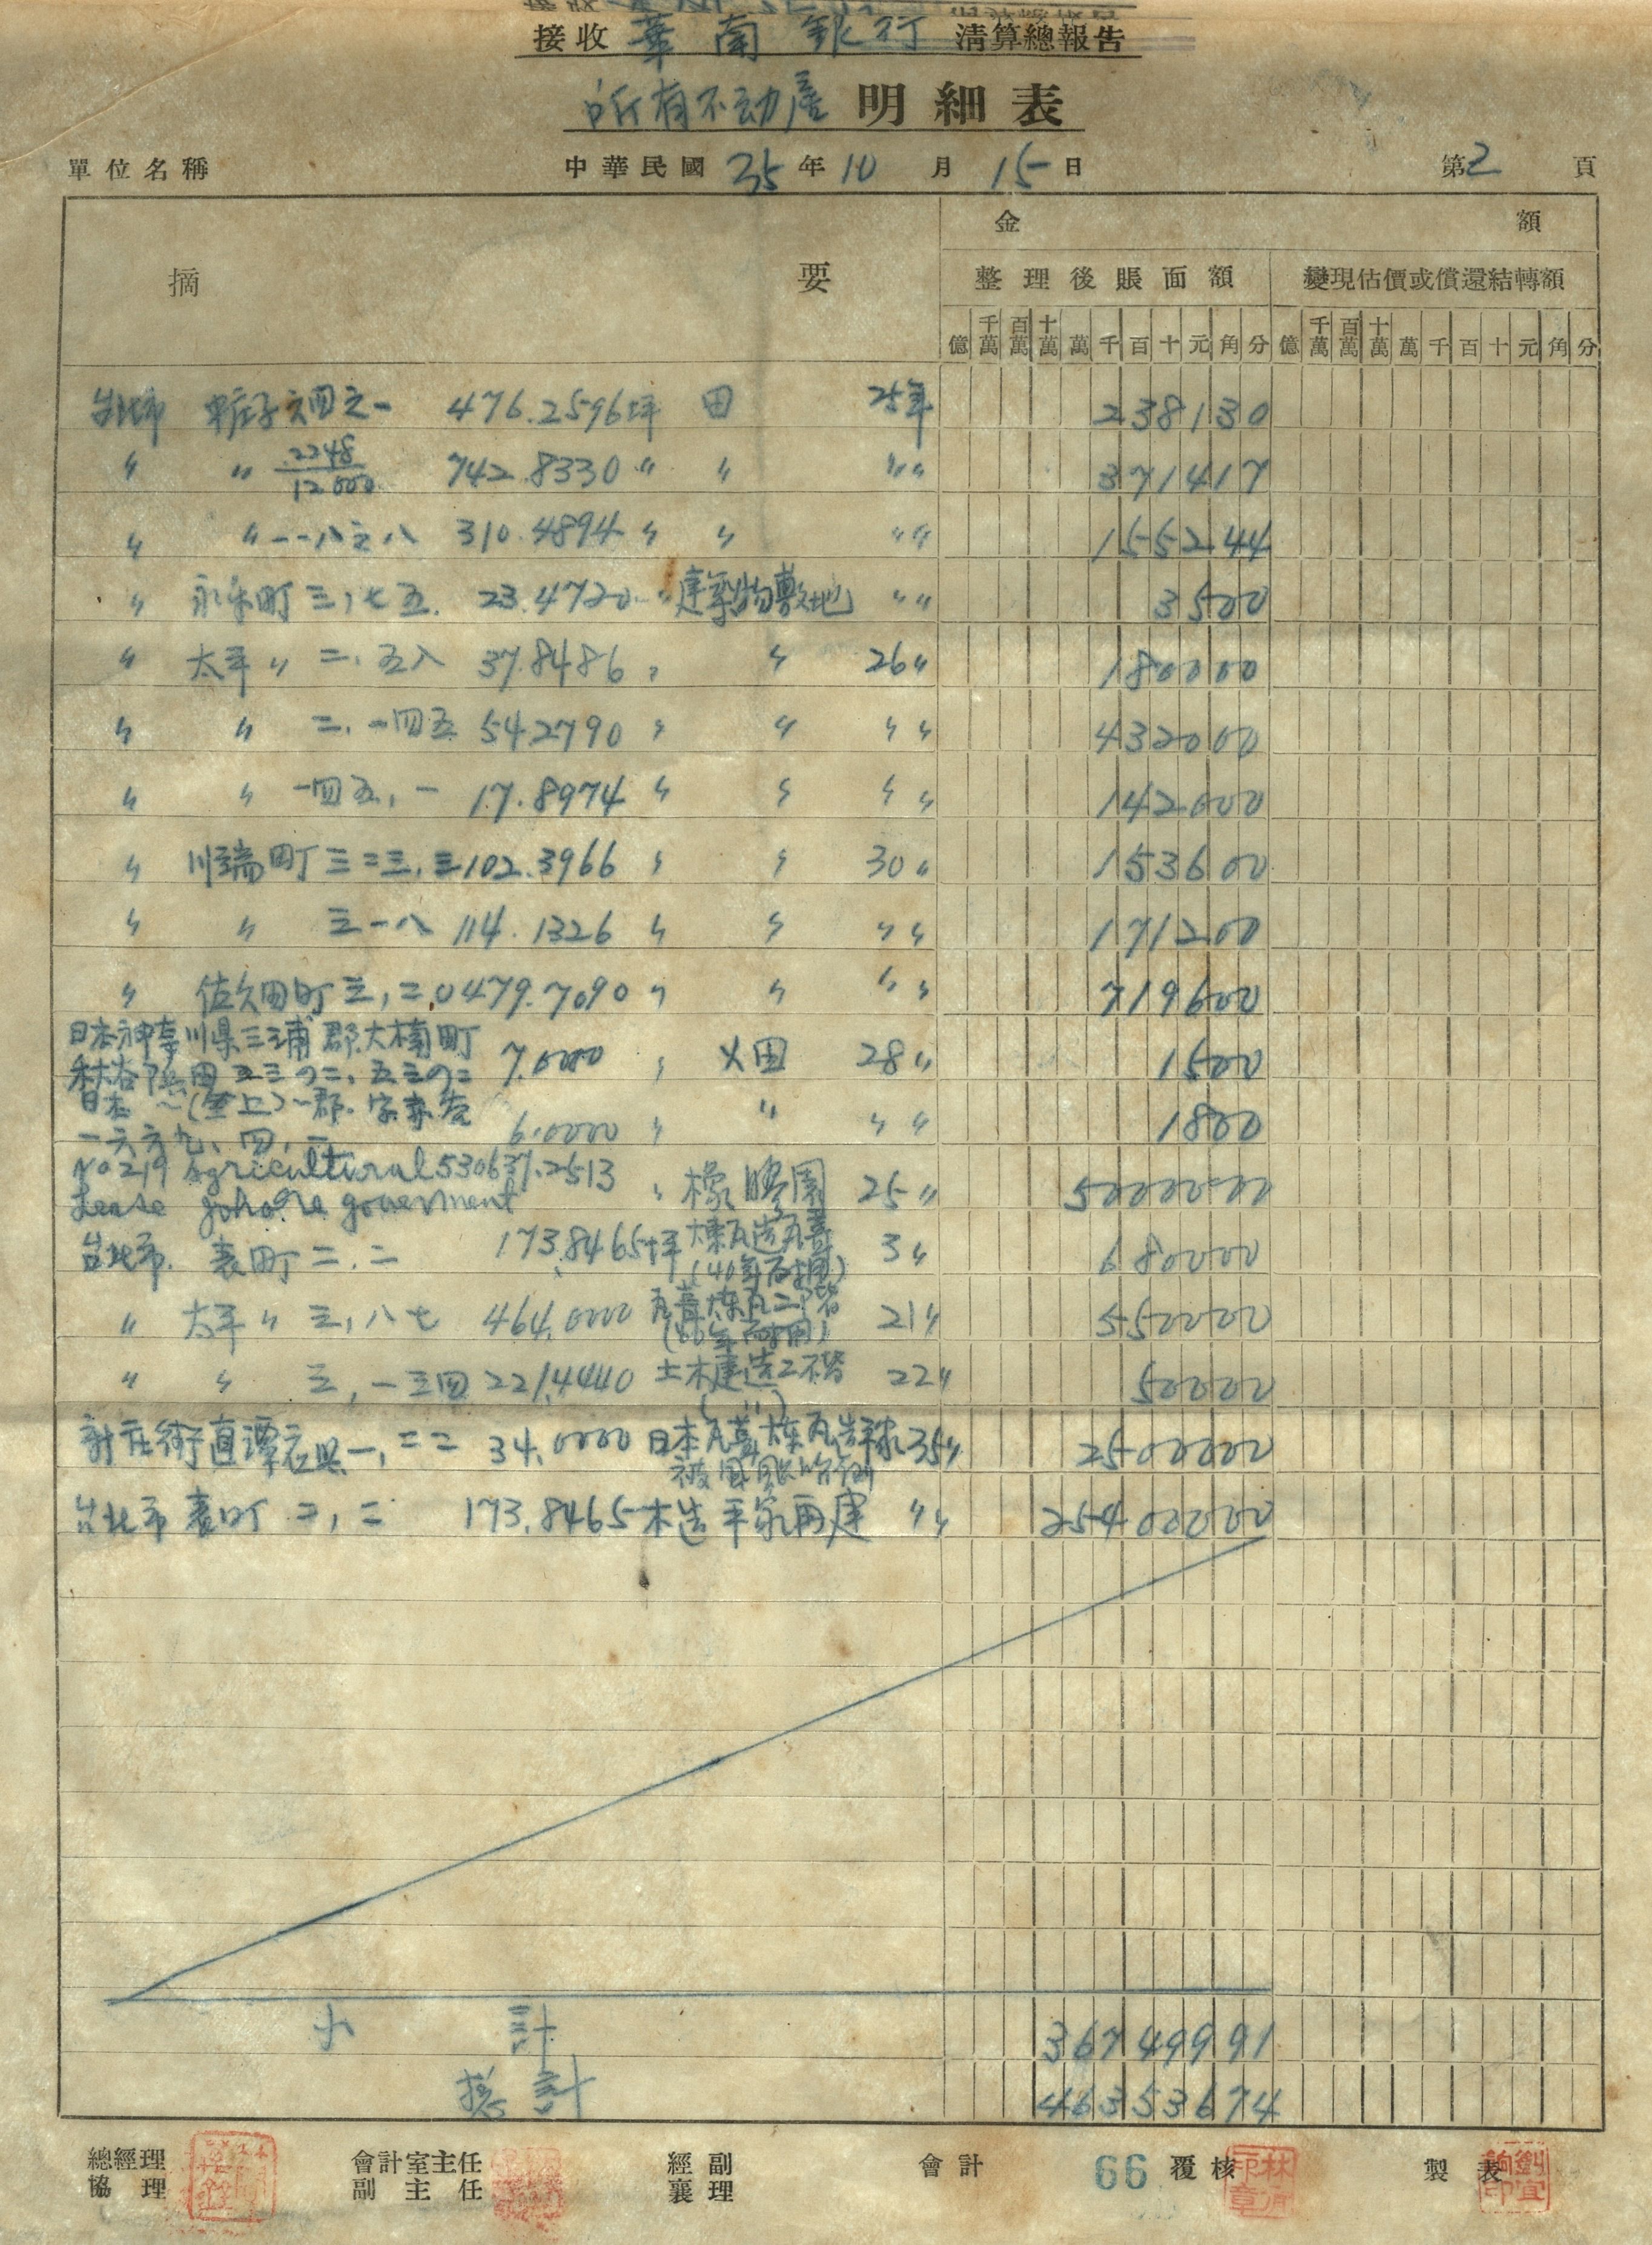 接收 華南銀行 清算總報告
所有不動產 明細表
單位名稱 中華民國 35 年 10 月 15 日 第 2 頁
摘 要 金 額
整理後賬面額 變現估價或償還結轉額
億 千萬 百萬 十萬 萬 千 百 十 元 角 分 億 千萬 百萬 十萬 萬 千 百 十 元 角 分
台北市 東庄子六四之一 476.2596坪 田 25年 238130
〃 〃 2248/12000 742.8330〃 〃 〃〃 371417
〃 〃一一八之八 310.4894〃 〃 〃〃 155244
〃 永楽町三,七五. 23.4720〃 建築物敷地 〃〃 3500
〃 太平〃 二,五八 37.8486〃 〃 26〃 180000
〃 〃 二,一四五 54.2790〃 〃 〃〃 432000
〃 〃 一四五,一 17.8974〃 〃 〃〃 142000
〃 川端町三二三,三 102.3966〃 〃 30〃 153600
〃 〃 三一八 114.1326〃 〃 〃〃 171200
〃 佐久間町三,二0 479.7090〃 〃 〃〃 719600
日本神奈川県三浦郡大楠町
秋谷 田五三の二,五三の二 7.0000〃 畑 28〃 1500
日本〜(仝上)〜郡.字秋谷
一六六九、四,二 6.0000〃 〃 〃〃 1800
No 219 Agricultural 530631.2513
Lease Johore government 〃 橡膠園 25〃 5000000
台北市. 表町二.二 173.8465坪 煉瓦造瓦葺 3〃 680000
(40年耐用)
〃 太平〃 三,八七 464.0000 瓦葺煉瓦二階 21〃 550000
〃 〃 三,一三四 221.4440 土木建造二階 22〃 50000
(〃)
新店街直潭 一,二二 34.0000 日本瓦葺煉瓦造平家 35〃 2500000
台北市表町二,二 173.8465 木造平家再建 〃〃 25400000
小 計 36749991
總計 46353674
總經理 協理 會計室主任 副主任 經副襄理 會計 66 覆核 製表